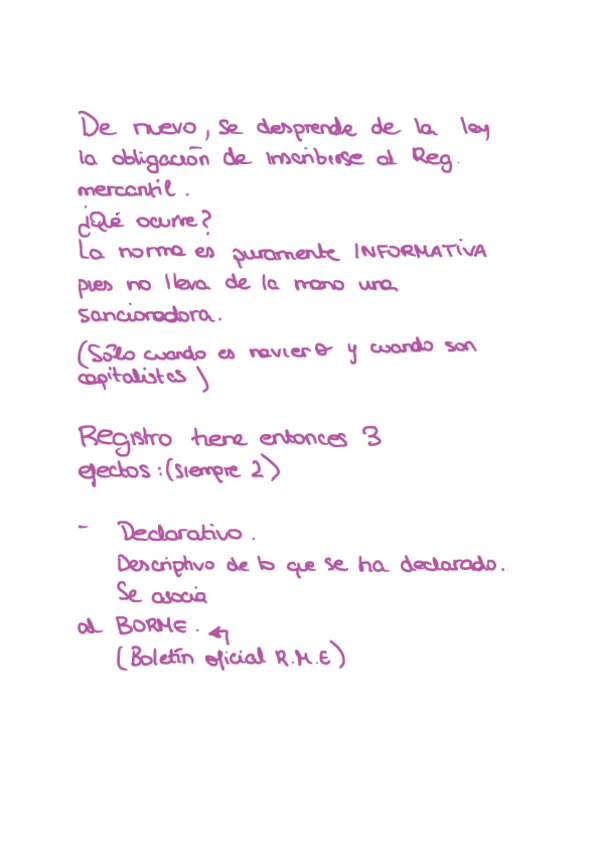 De nuevo, se desprende de la ley
la obligación de inscribirse al Reg.
mercantil.
¿Qué ocurre?
La norma es puramente INFORMATIVA
pues no lleva de la mano una
sancionadora.
(Sólo cuando es naviero y cuando son
capitalistas)
Registro tiene entonces 3
efectos: (siempre 2)
- Declarativo.
Descriptivo de lo que se ha declarado.
Se asocia
al BORME.
(Boletín oficial R.M.E)